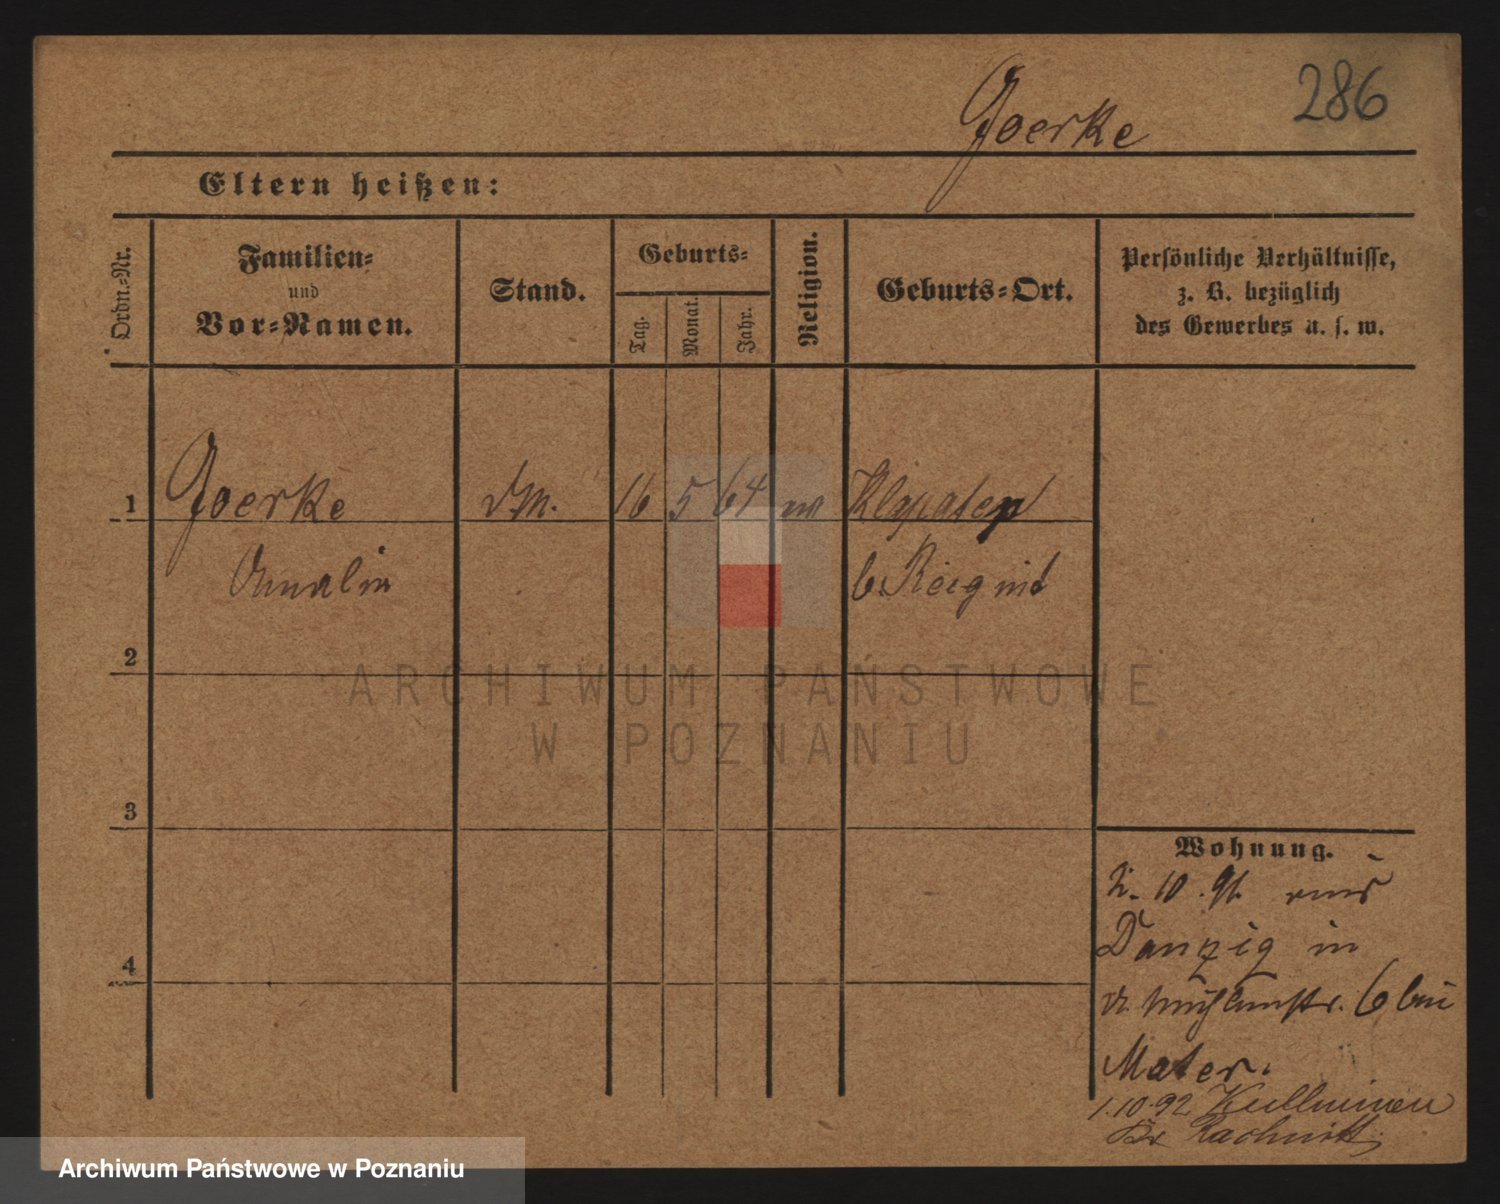 286
Goerke
Eltern heißen:
Ordn.-Nr.
Familien-
und
Vor-Namen.
Stand.
Geburts-
Tag.
Monat.
Jahr.
Religion.
Geburts-Ort.
Persönliche Verhältnisse,
z. B. bezüglich
des Gewerbes u. s. w.
1 Goerke 16 5 64
b. Ragnit
2
3
4
ARCHIWUM PAŃSTWOWE
W POZNANIU
Wohnung.
2. 10. 91. aus
Danzig in
6 bei
Mater.
1.10.92
Archiwum Państwowe w Poznaniu